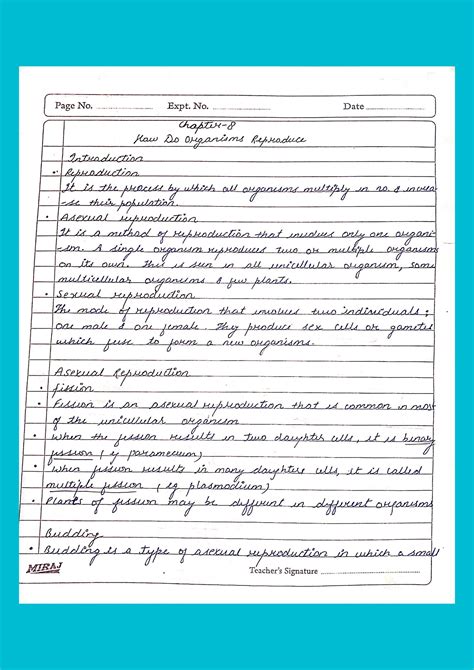 Page No. Expt. No. Date
Chapter-8
How Do Organisms Reproduce
Introduction
• Reproduction
It is the process by which all organisms multiply in no. & increa-
se their population.
• Asexual reproduction
It is a method of reproduction that involves only one organi-
sm. A single organism reproduces two or multiple organisms
on its own. This is seen in all unicellular organism, some
multicellular organisms & few plants.
• Sexual reproduction
The mode of reproduction that involves two individuals;
one male & one female. They produce sex cells or gametes
which fuse to form a new organisms.
Asexual Reproduction
• fission
• Fission is an asexual reproduction that is common in most
of the unicellular organism
• When the fission results in two daughter cells, it is binary
fission (eg paramecium)
• When fission results in many daughter cells it is called
multiple fission (eg plasmodium)
• Planes of fission may be different in different organisms
Budding
• Budding is a type of asexual reproduction in which a small
MIRAJ Teacher's Signature